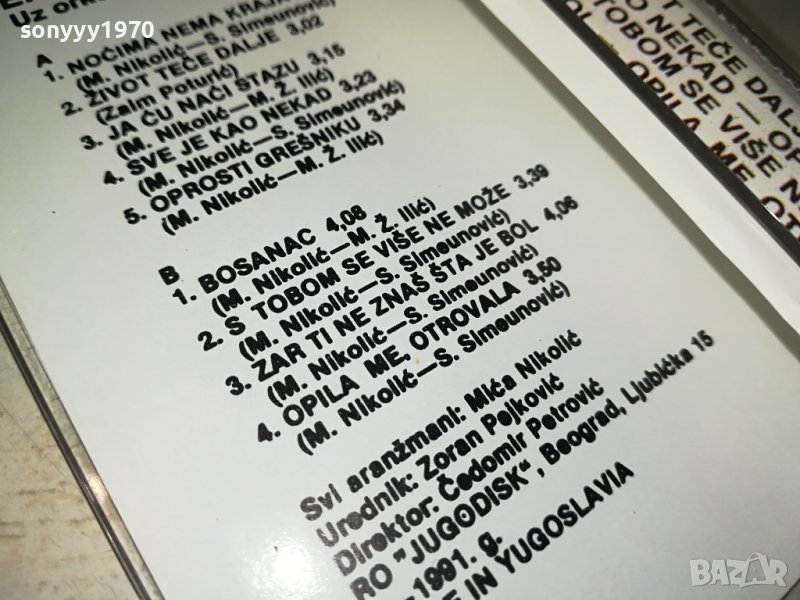 sonyyy1970
Uz
A
1. NOĆIMA NEMA KRAJA
(M. Nikolić—S. Simeunović)
2. ŽIVOT TEČE DALJE 3,02
(Zaim Poturić)
3. JA ĆU NAĆI STAZU 3,15
(M. Nikolić—M. Ž. Ilić)
4. SVE JE KAO NEKAD 3,23
(M. Nikolić—S. Simeunović)
5. OPROSTI GREŠNIKU 3,34
(M. Nikolić—M. Ž. Ilić)
B
1. BOSANAC 4,08
(M. Nikolić—M. Ž. Ilić)
2. S TOBOM SE VIŠE NE MOŽE 3,39
(M. Nikolić—S. Simeunović)
3. ZAR TI NE ZNAŠ ŠTA JE BOL 4,06
(M. Nikolić—S. Simeunović)
4. OPILA ME, OTROVALA 3,50
(M. Nikolić—S. Simeunović)
Svi aranžmani: Mića Nikolić
Urednik: Zoran Pejković
Direktor: Čedomir Petrović
RO "JUGODISK", Beograd, Ljubička 15
1991. g.
IN YUGOSLAVIA
TEČE DALJE
NEKAD — OP
TOBOM SE VIŠE N
BOL OPILA ME OT
BAZAR